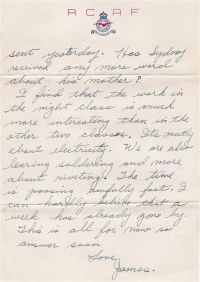 RCAF
sent yesterday. Has Sydney
received any more word
about his mother?
I find that the work in
the night class is much
more intresting than in the
other two classes. Its mostly
about electricity. We are also
learing soldering and more
about riveting. The time
is passing awfully fast. I
can hardly believe that a
week has already gone by.
This is all for now so
answer soon
Love
James.